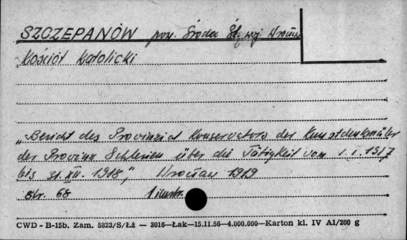 SZCZEPANÓW pow. Środa Śl. woj Wrocław
Kościół Katolicki
"Bericht des Provinzial Konservators der Kunstdenkmäler
der Provinz Schlesien über die Tätigkeit vom 1.I.1917
bis 31.XII.1918", Wrocław 1919
str. 68 1 ilustr.
CWD - B-15b. Zam. 5823/S/Łź — 3016—Łak—15.11.56—4.000.000—Karton kl. IV A1/200 g